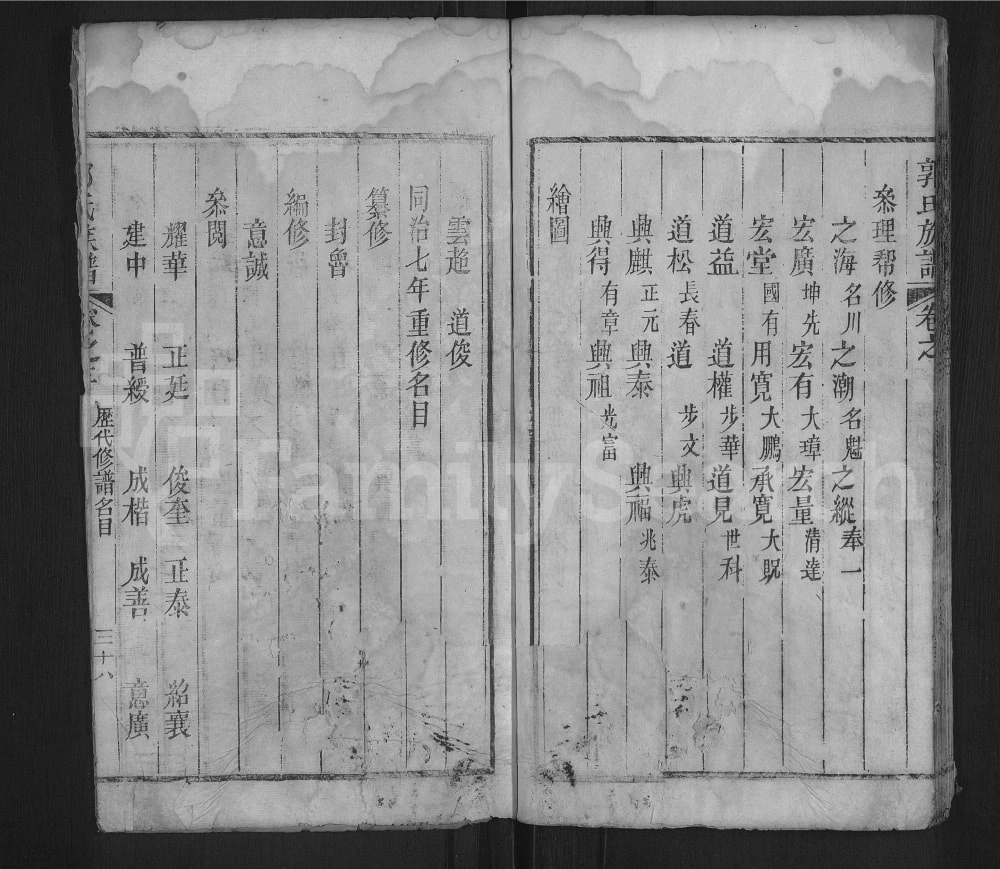 郭氏族譜 卷之
叅理帮修
之海 名川 之潮 名魁 之縱 奉一
宏廣 坤先 宏有 大璋 宏量 清達
宏堂 國有 用寛 大鵬 承寛 大
道益 道權 步華 道見 世科
道松 長春 道 步文 興虎
興麒 正元 興泰 興福 兆泰
興得 有章 興祖 光富
繪圖
雲趒 道俊
同治七年重修名目
纂修
封魯
編修
意誠
叅閲
耀華 正廷 俊奎 正泰 紹襄
建中 普綬 成楷 成善 意廣
歷代修譜名目 三十八
FamilySearch